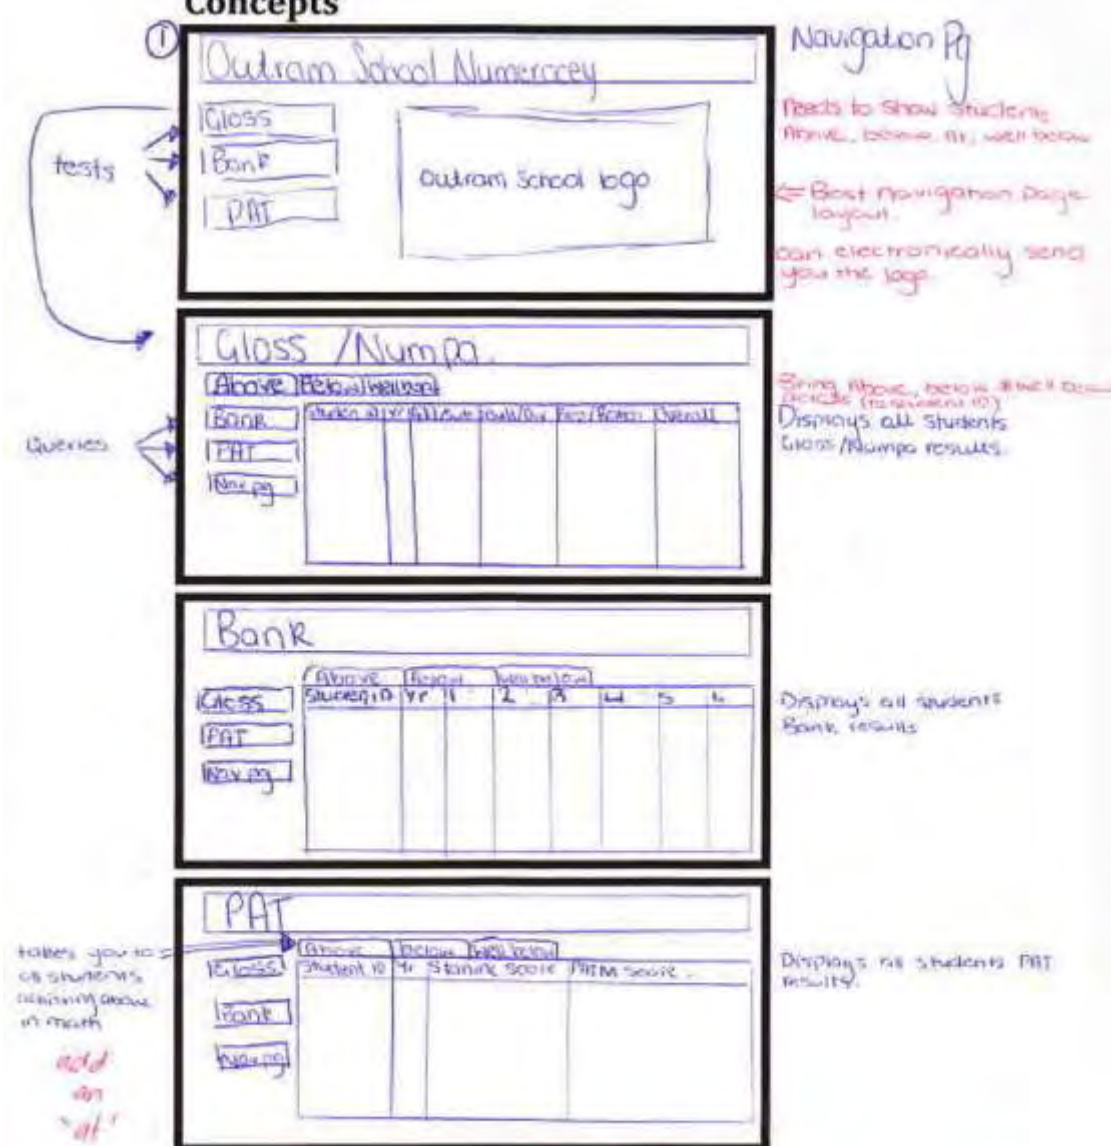 Concepts
1
Outram School Numeracey
Navigation Pg
Gloss
Bank
PAT
tests
Outram School logo
Needs to show students
Above, below, At, well below
Best navigation page
layout.
can electronically send
you the logo.
Gloss /Numpa.
Above Below Well below
Bank
PAT
Nav pg
Queries
Student ID Yr Overall
Bring Above, below & well below
Displays all students
Gloss/Numpa results.
Bank
Above Below Well below
Gloss
PAT
Nav pg
Student ID Yr 1 2 3 4 5 6
Displays all students
Bank results
PAT
Above below Well below
Gloss
Bank
Nav pg
Student ID Yr Stanine Score PATM Score.
takes you to
all students
achieving above
in math
add
an
"at"
Displays all students PAT
results.